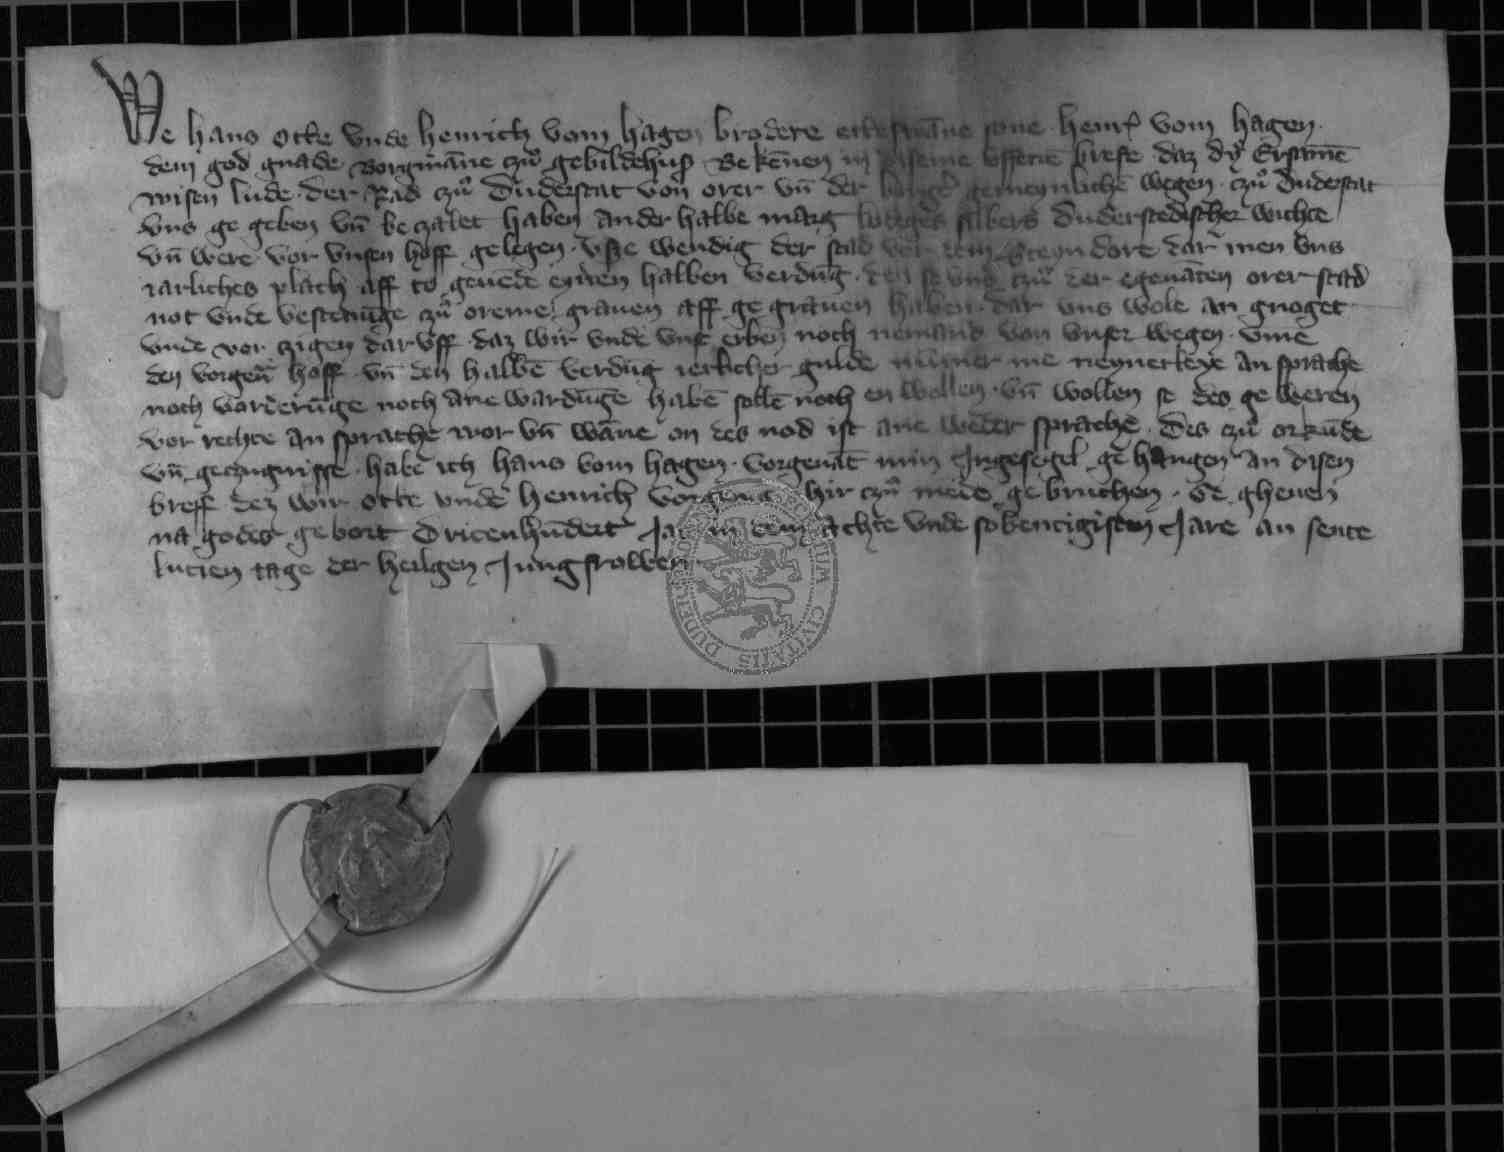 We hans otte vnde henrich vom hagen brodere etteswāne sone henr̄ vom hagen
dem god gnade Borgmāne czů gebildehusz Bekēnen in diseme offenē brefe daz dẙ Ersamē
wisen lude der Rad czů Duderstat von orer vn̄ der borger gemeynlichē wegen czů duderstat
vns ge geben vn̄ be czalet haben ander halbe marg lodeges silbers duderstedischer wichte
vn̄ were vor vnsen hoff gelegen vsze wendig der stad vor dem Steyndore dar men vns
iarliches plach aff to geuēde eynen halben verdūg den se vns czů der egenāten orer stad
not vnde vestenūge czů oreme grauen aff ge grauen haben dar vns wole an gnoget
vnde vor czigen dar vff daz wir vnde vnse erben noch nemand von vnser wegen vme
den vorgen̄ hoff vn̄ den halbē verdūg ierlicher gulde nūmer me neynerleye an sprache
noch vorderūge noch ane wardūge habē sollē noch en wollen vn̄ wollen se des ge weren
vor rechte an sprache wor vn̄ wāne on des nod ist ane weder sprache Des czů orkūde
vn̄ geczugnisse habe ich hans vom hagen vorgenāt min Ingesegel ge hangen an disen
breff dez wir otte vnde henrich vorgen̄ hir czů mede ge bruchen Ge gheuen
na godes ge bort Dritenhūdert Jar in dem achte vnde sobentigisten Jare an sente
lucien tage der heilgen Jungfrowen
DUDERST CIVITATIS